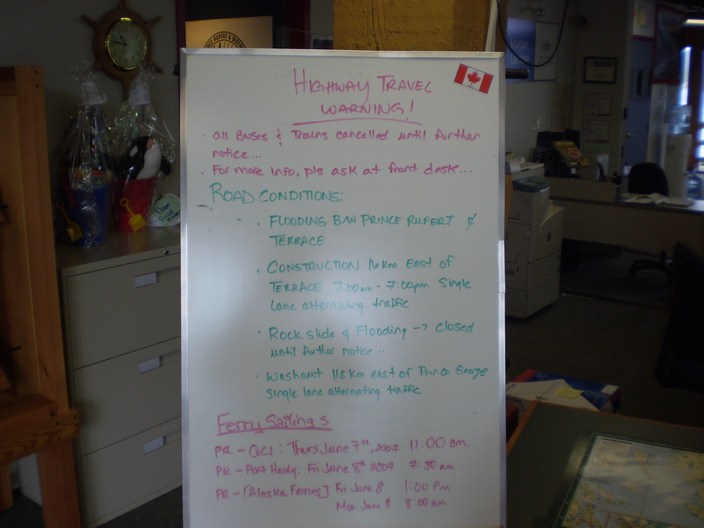 HIGHWAY TRAVEL
WARNING!
· all Buses & Trains cancelled until further
notice...
· For more info, pls ask at front desk...
ROAD CONDITIONS:
· FLOODING B/W PRINCE RUPERT &
TERRACE
· CONSTRUCTION 16 Km East of
TERRACE 7:00am - 7:00pm Single
Lane alternating traffic
· Rock slide & Flooding -> closed
until further notice...
· Washout 118 Km east of Prince George
single lane alternating traffic
Ferry Sailings
PR - QCI: Thurs, June 7th, 2007 11:00 am
PR - Port Hardy: Fri June 8th 2007 7:30 am
PR - [Alaska Ferries] Fri June 8 1:00 Pm
June 8 8:00 am